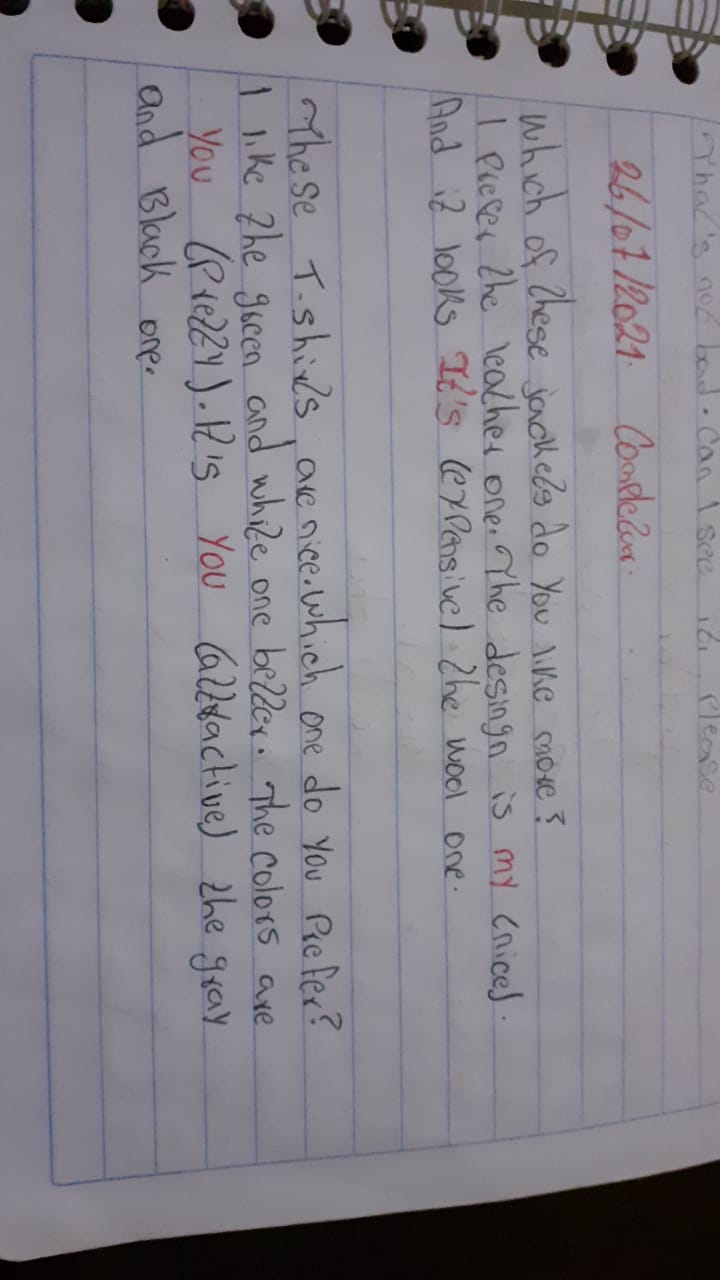 That's not bad. Can I see it, please
26/07/2021. Completar.
Which of these jackets do you like more?
I prefer the leather one. The desingn is my (nice).
And it looks It's (expensive) the wool one.
These T-shirts are nice. Which one do you prefer?
I like the green and white one better. The colors are
You (Pretty). It's You (attractive) the gray
and Black one.